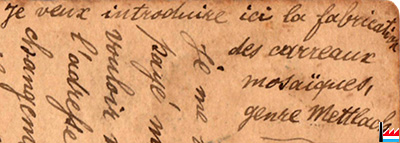 je veux introduire ici la fabrication
des carreaux
mosaïques,
genre Mettlach
Je me
payé m
vouloir
l'adresse
changem